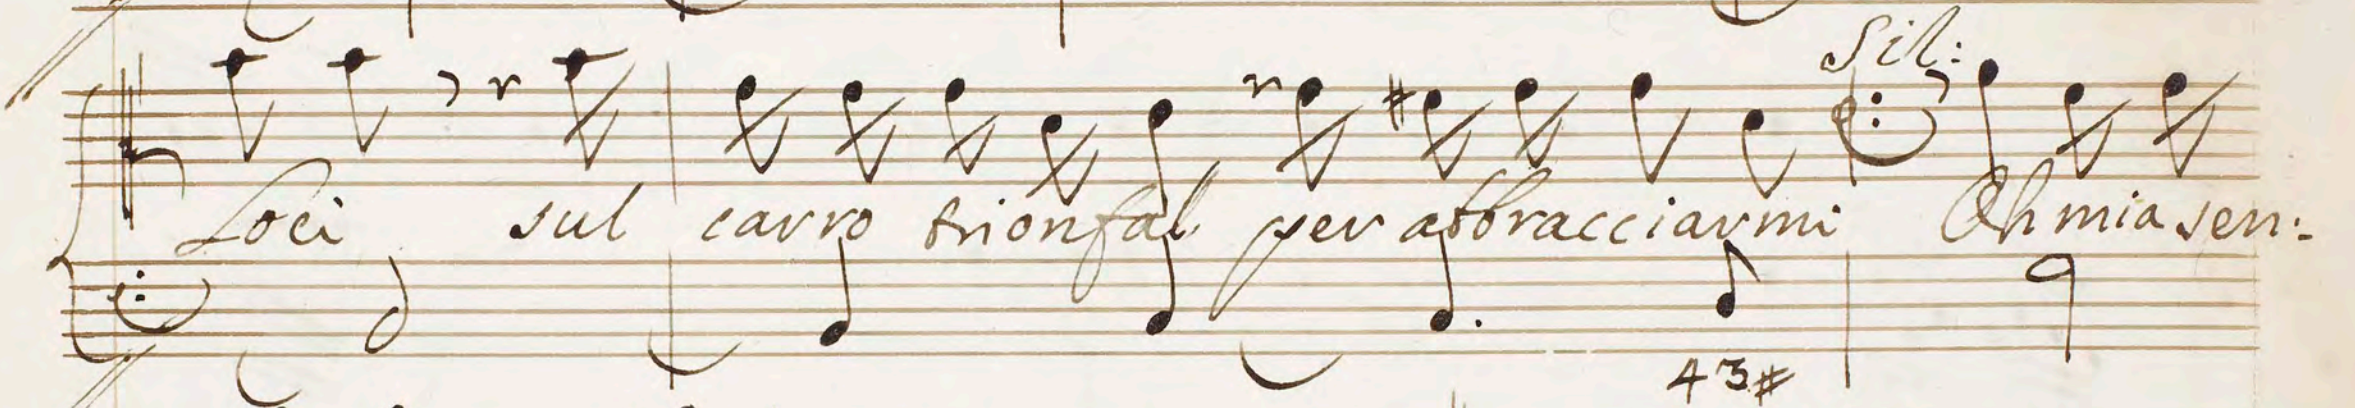 Sil:
Loci sul carro trionfal per abbracciarmi Oh mia sen:
4 3#